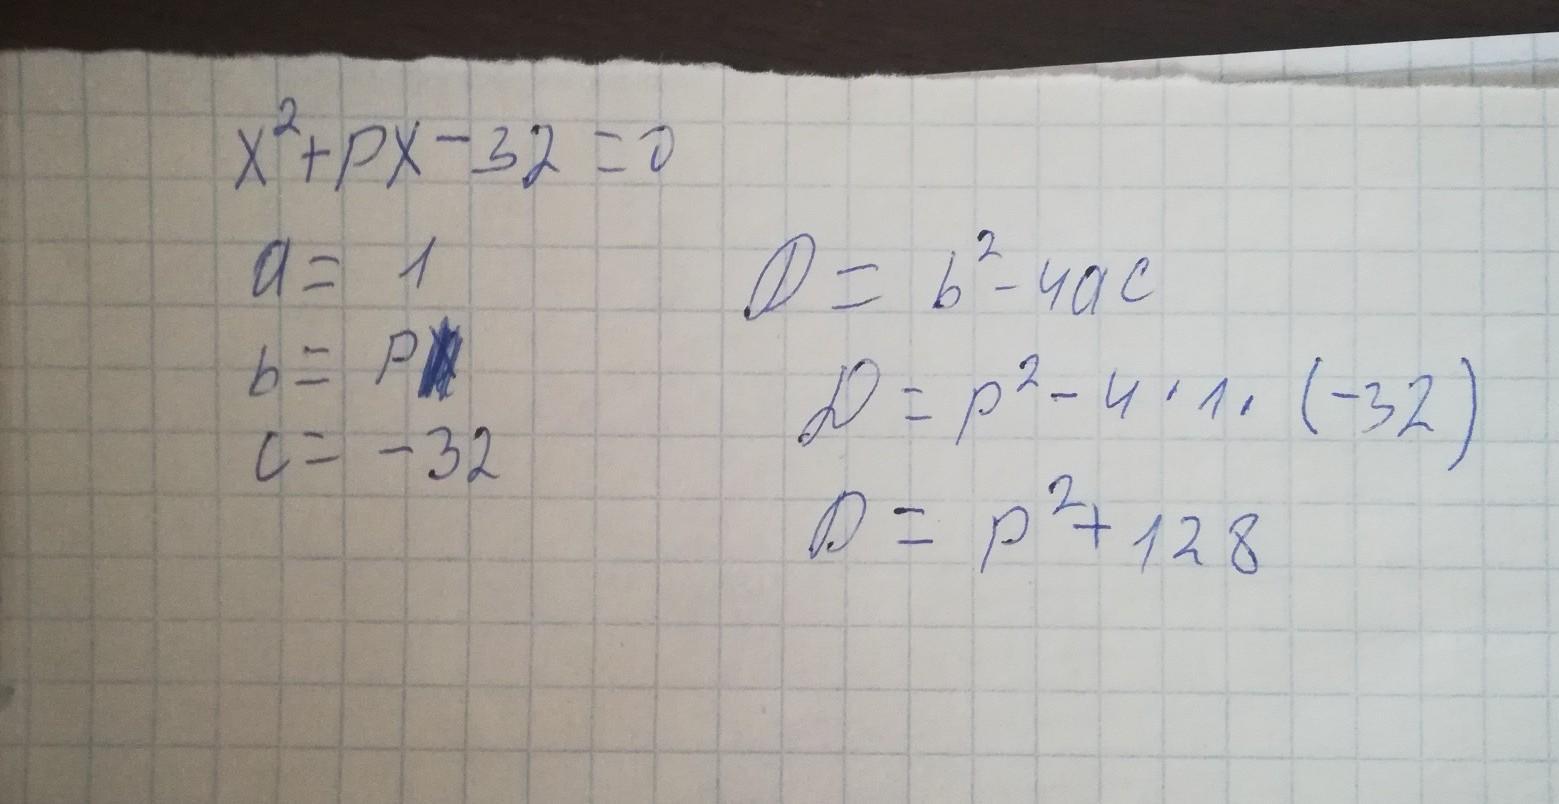 x²+px-32=0
a= 1
b= p
c= -32
D= b²-4ac
D= p²-4·1·(-32)
D= p²+128